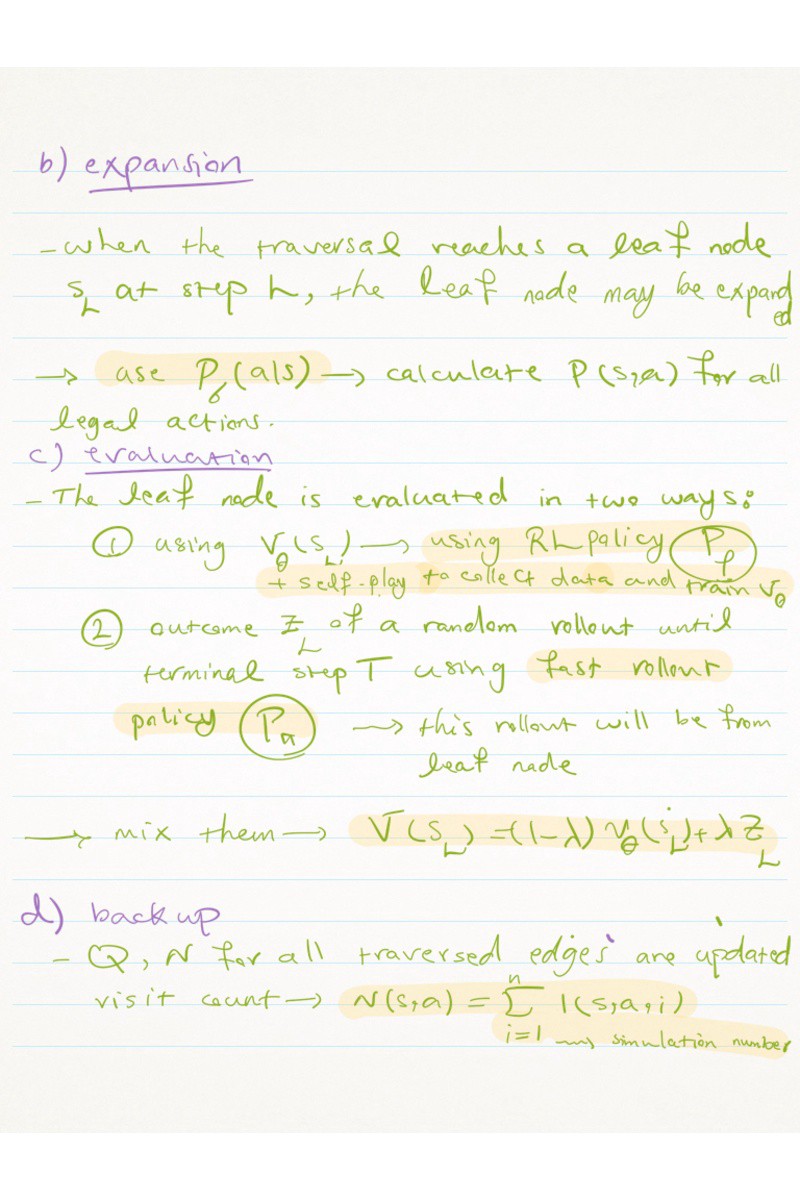 b) expansion
- when the traversal reaches a leaf node
s_L at step L, the leaf node may be expand
ed
→ use P_σ(a|s) → calculate P(s,a) for all
legal actions.
c) evaluation
- The leaf node is evaluated in two ways:
① using V_θ(s_L) → using RL policy P_ρ
+ self-play to collect data and train v_θ
② outcome Z_L of a random rollout until
terminal step T using fast rollout
policy P_π → this rollout will be from
leaf node
→ mix them → V(s_L) = (1-λ) v_θ(s_L) + λ Z_L
d) backup
- Q, N for all traversed edges are updated
visit count → N(s,a) = Σ_{i=1}^{n} 1(s,a,i)
→ simulation number